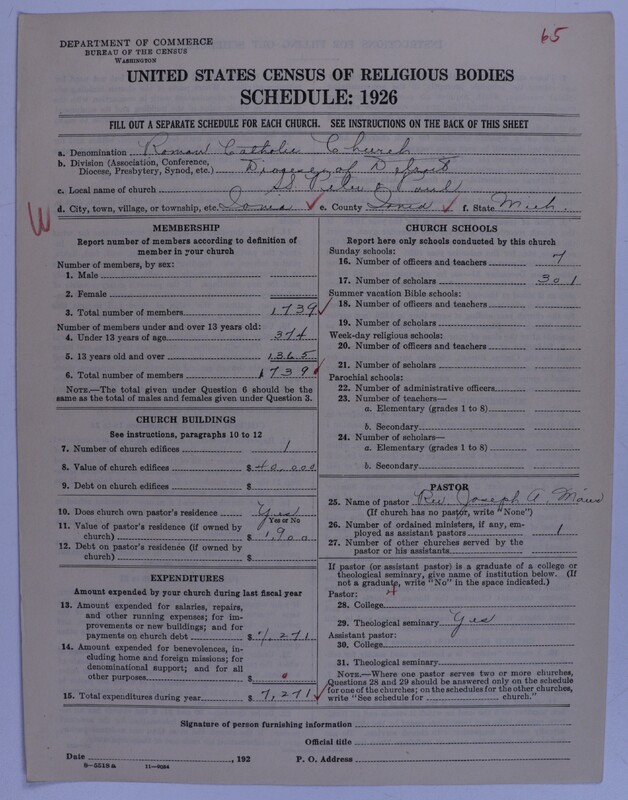 65
DEPARTMENT OF COMMERCE
BUREAU OF THE CENSUS
WASHINGTON
UNITED STATES CENSUS OF RELIGIOUS BODIES
SCHEDULE: 1926
FILL OUT A SEPARATE SCHEDULE FOR EACH CHURCH. SEE INSTRUCTIONS ON THE BACK OF THIS SHEET
a. Denomination Roman Catholic Church
b. Division (Association, Conference, Diocese, Presbytery, Synod, etc.) Diocese of Detroit
c. Local name of church SS Peter & Paul
W
d. City, town, village, or township, etc. Ionia e. County Ionia f. State Mich.
MEMBERSHIP
Report number of members according to definition of
member in your church
Number of members, by sex:
1. Male
2. Female
3. Total number of members 1739
Number of members under and over 13 years old:
4. Under 13 years of age 374
5. 13 years old and over 1365
6. Total number of members 1739
NOTE.—The total given under Question 6 should be
same as the total of males and females given under Question 3.
CHURCH BUILDINGS
See instructions, paragraphs 10 to 12
7. Number of church edifices 1
8. Value of church edifices $ 40,000
9. Debt on church edifices $
10. Does church own pastor's residence Yes
Yes or No
11. Value of pastor's residence (if owned by
church) $ 1,900
12. Debt on pastor's residence (if owned by
church) $
EXPENDITURES
Amount expended by your church during last fiscal year
13. Amount expended for salaries, repairs,
and other running expenses; for im-
provements or new buildings; and for
payments on church debt $ 7,271
14. Amount expended for benevolences, in-
cluding home and foreign missions; for
denominational support; and for all
other purposes $
15. Total expenditures during year $ 7,271
CHURCH SCHOOLS
Report here only schools conducted by this church
Sunday schools:
16. Number of officers and teachers 7
17. Number of scholars 301
Summer vacation Bible schools:
18. Number of officers and teachers
19. Number of scholars
Week-day religious schools:
20. Number of officers and teachers
21. Number of scholars
Parochial schools:
22. Number of administrative officers
23. Number of teachers—
a. Elementary (grades 1 to 8)
b. Secondary
24. Number of scholars—
a. Elementary (grades 1 to 8)
b. Secondary
PASTOR
25. Name of pastor Rev Joseph A.
(If church has no pastor, write "None")
26. Number of ordained ministers, if any, em-
ployed as assistant pastors 1
27. Number of other churches served by the
pastor or his assistants
If pastor (or assistant pastor) is a graduate of a college or
theological seminary, give name of institution below. (If
not a graduate, write "No" in the space indicated.)
Pastor: 4
28. College
29. Theological seminary Yes
Assistant pastor:
30. College
31. Theological seminary
NOTE.—Where one pastor serves two or more churches,
Questions 28 and 29 should be answered only on the schedule
for one of the churches; on the schedules for the other churches,
write "See schedule for church."
Signature of person furnishing information
Official title
Date , 192 P. O. Address
8-5519a 11-9064